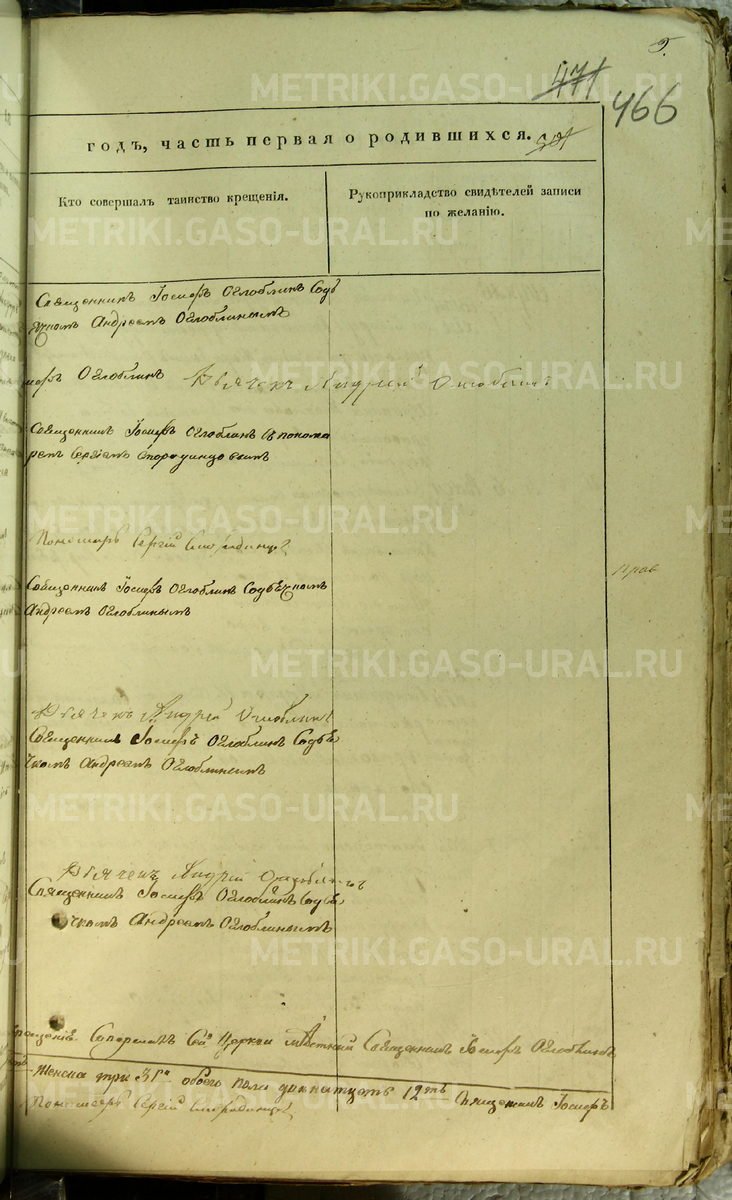 5.
471
466
годъ, часть первая о родившихся.
501
Кто совершалъ таинство крещенія.
Рукоприкладство свидѣтелей записи
по желанію.
METRIKI.GASO-URAL.RU
Священникъ Іосифъ Оглоблинъ Содъ
ячкомъ Андреемъ Оглоблинымъ
Оглоблинъ Дьячекъ Андрей Оглоблинъ
Священникъ Іосифъ Оглоблинъ съ понома
ремъ Сергіемъ Смородинцовымъ
METRIKI.GASO-URAL.RU
Пономарь Сергій Смородинцовъ
прав
Священникъ Іосифъ Оглоблинъ Содьячкомъ
Андреемъ Оглоблинымъ
METRIKI.GASO-URAL.RU
Дьячекъ Андрей Оглоблинъ
Священникъ Іосифъ Оглоблинъ Содья
чкомъ Андреемъ Оглоблинымъ
METRIKI.GASO-URAL.RU
Дьячекъ Андрей Оглоблинъ
Священникъ Іосифъ Оглоблинъ Содья
чкомъ Андреемъ Оглоблинымъ
METRIKI.GASO-URAL.RU
Церкви Священникъ Іосифъ Оглоблинъ
Женска три 3. обоего пола двенатцеть 12ть Священникъ Іосифъ
Пономарь Сергій Смородинцовъ
METRIKI.GASO-URAL.RU